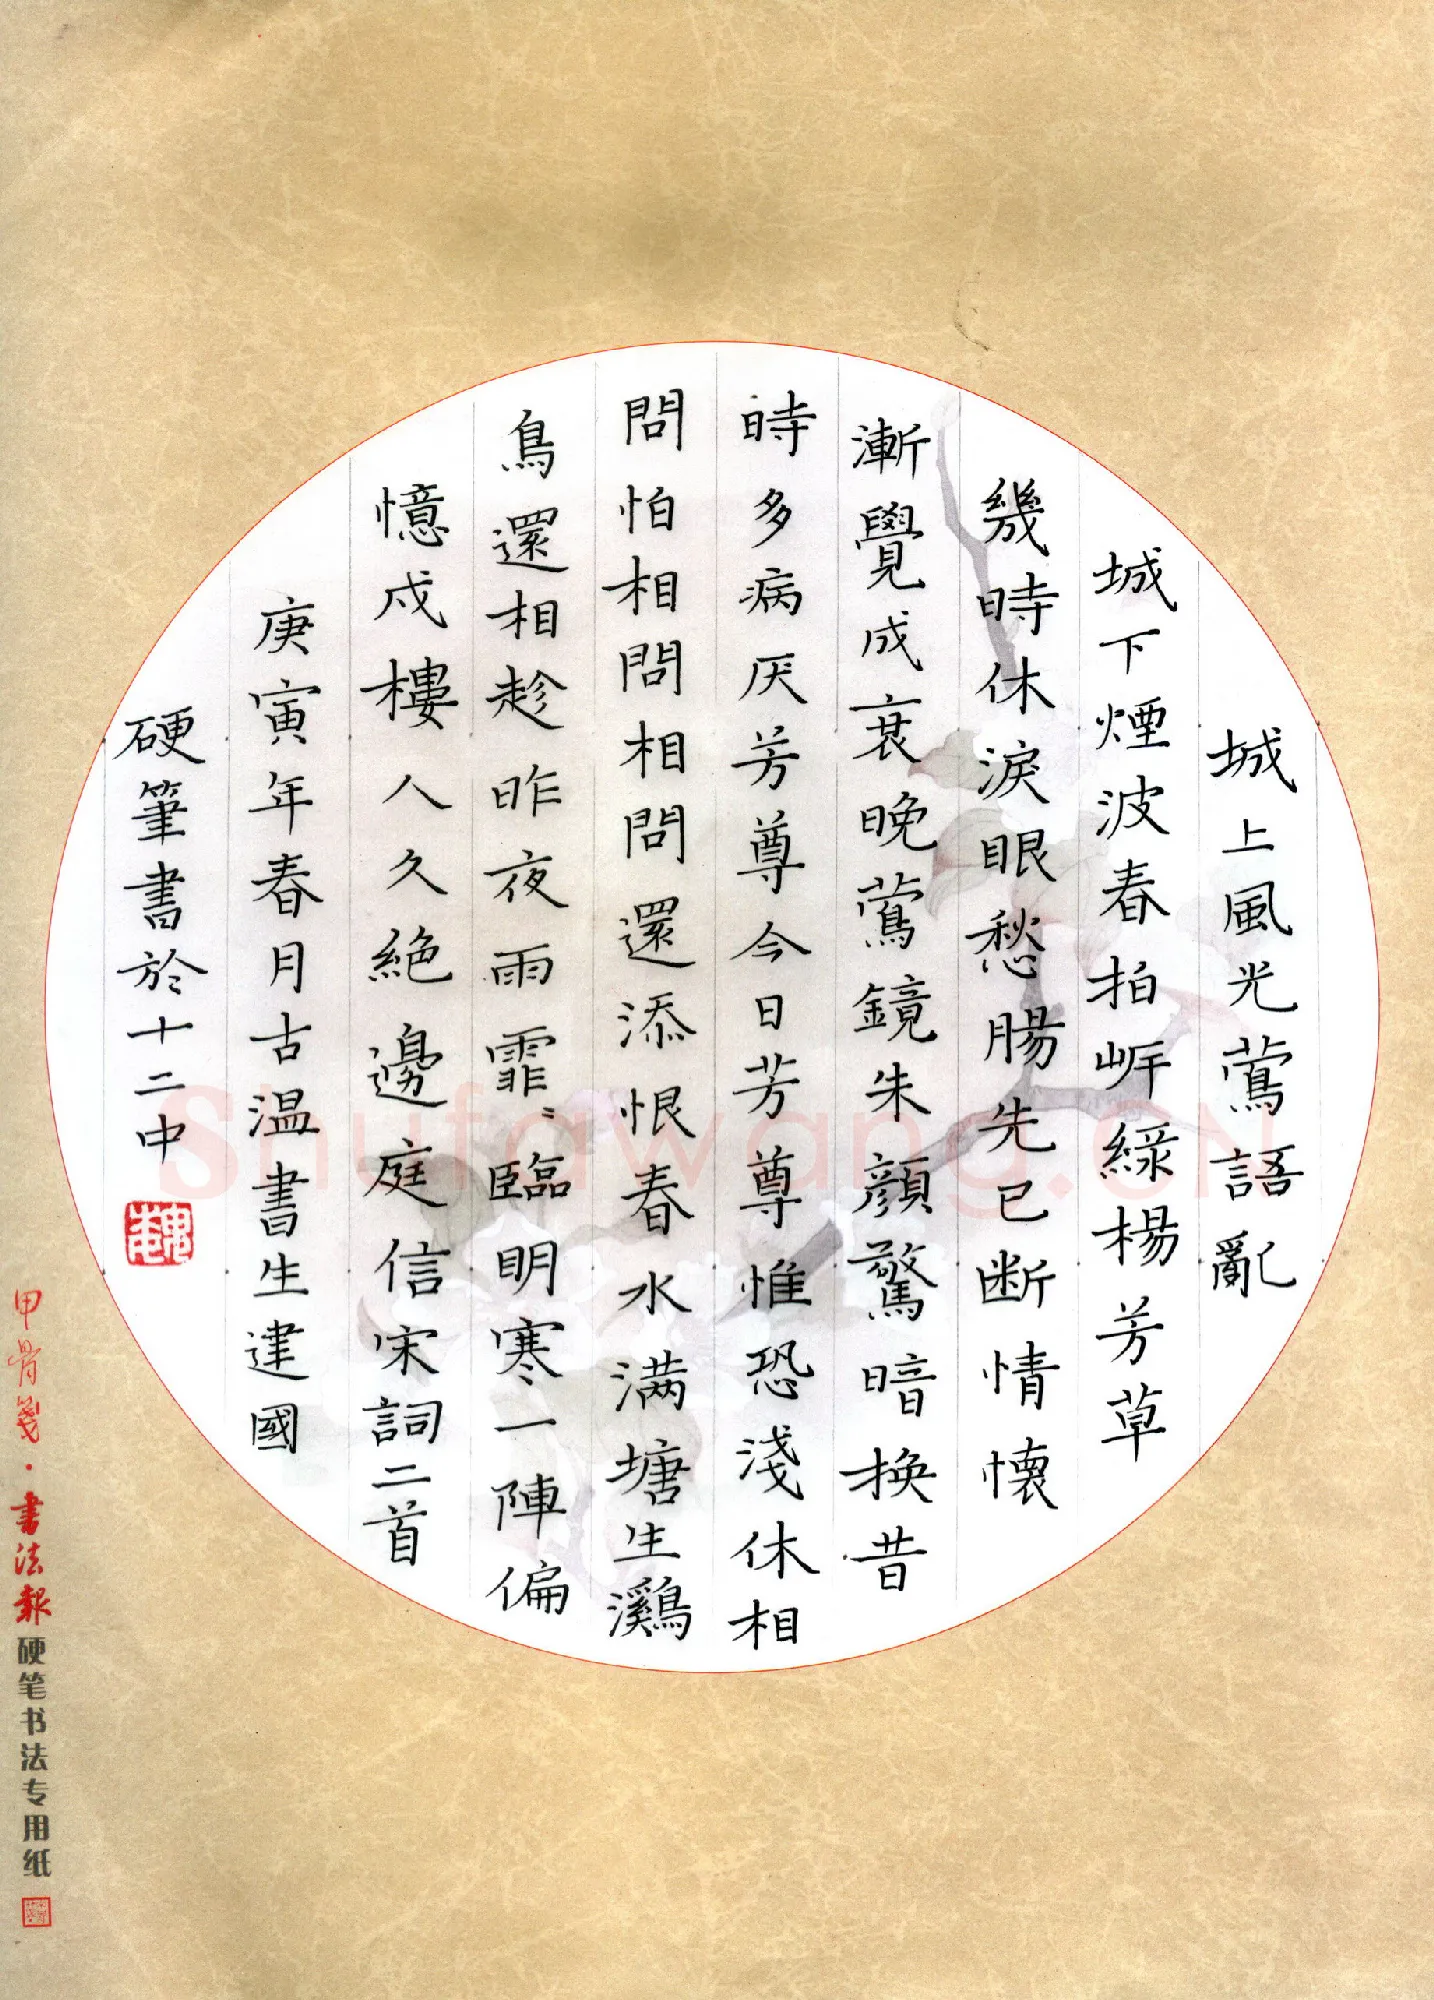 城上風光鶯語亂
城下煙波春拍岸綠楊芳草
幾時休淚眼愁腸先已断情懷
漸覺成衰晚鶯鏡朱顏驚暗換昔
時多病厌芳尊今日芳尊惟恐淺休相
問怕相問相問還添恨春水满塘生鸂
鳥還相趁昨夜雨霏〻臨明寒一陣偏
憶戍樓人久絕邊庭信宋詞二首
庚寅年春月古温書生建國
硬筆書於十二中
甲骨箋·書法報硬笔书法专用纸
Shufawang.CN